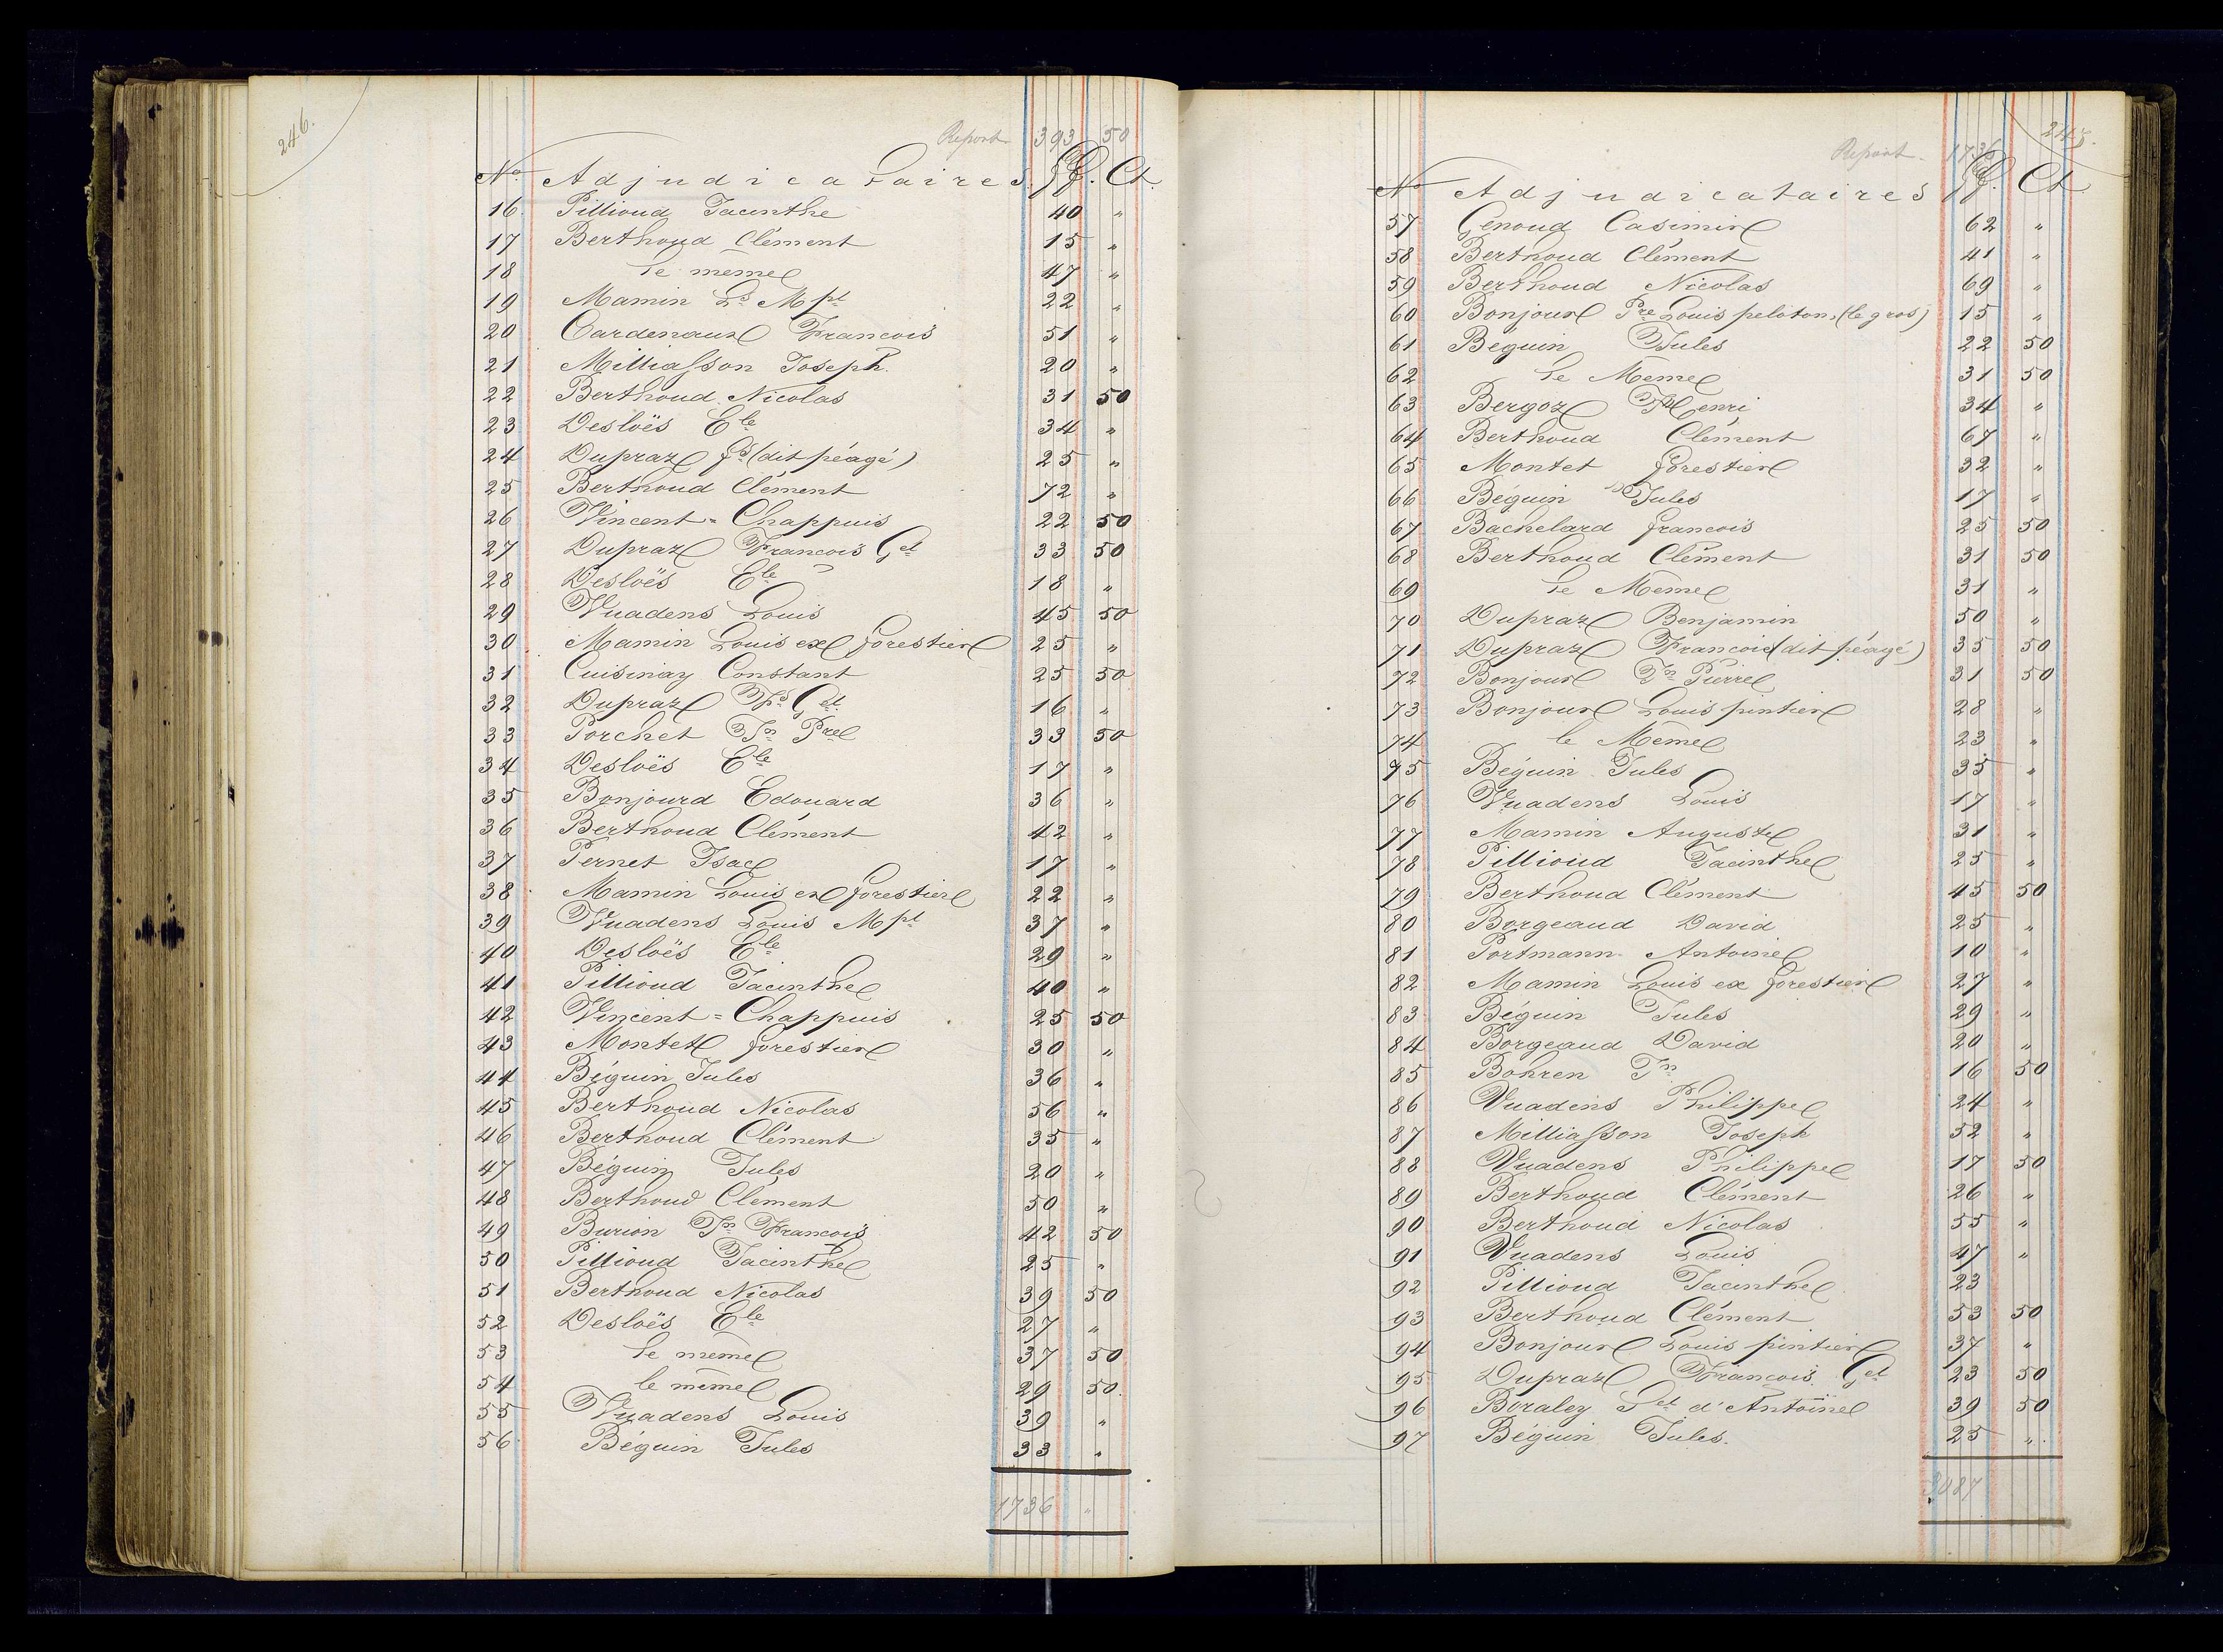 246.
Report 393 50
No Adjudicataires. Ff. Ct.
16. Pillioud Jacinthe 40 "
17 Berthoud Clément 15 "
18 le même 47 "
19 Mamin Ls Mpl 22 "
20 Cardenaux Francois 51 "
21 Milliasson Joseph. 20 "
22 Berthoud Nicolas 31 50
23 Desloës Ele 34 "
24 Dupraz fs (dit péagé) 25 "
25 Berthoud Clément 72 "
26 Vincent=Chappuis 22 50
27 Dupraz Francois Get 33 50
28 Desloës Ele 18 "
29 Vuadens Louis 45 50
30 Mamin Louis ex forestier 25 "
31 Cuisinay Constant 25 50
32 Dupraz Fs Get. 16 "
33 Porchet Jn Pre 33 50
34 Desloës Ele 17 "
35 Bonjourd Edouard 36 "
36 Berthoud Clément 42 "
37 Pernet Isac 17 "
38 Mamin Louis ex forestier 22 "
39 Vuadens Louis Mpl 37 "
40 Desloës Ele 29 "
41 Pillioud Jacinthe 40 "
42 Vincent=Chappuis 25 50
43 Montet forestier 30 "
44 Béguin Jules 36 "
45 Berthoud Nicolas 56 "
46 Berthoud Clément 35 "
47 Béguin Jules 20 "
48 Berthoud Clément 50 "
49 Burion Jn Francois 42 50
50 Pillioud Jacinthe 25 "
51 Berthoud Nicolas 39 50
52 Desloës Ele 27 "
53 le même 37 50
54 le même 29 50.
55 Vuadens Louis 39 "
56. Béguin Jules 33 "
1736 "
245.
Report. 1736
No Adjudicataires Ff. Ct
57 Genoud Casimir 62 "
58 Berthoud Clément 41 "
59 Berthoud Nicolas 69 "
60 Bonjour Pre Louis peloton, (le gros) 15 "
61 Béguin Jules 22 50
62 le Meme 31 50
63 Bergoz Henri 34 "
64 Berthoud Clément 67 "
65 Montet forestier 32 "
66 Béguin Jules 17 "
67 Bachelard francois 25 50
68 Berthoud Clément 31 50
69 le Même 31 "
70 Dupraz Benjamin 50 "
71 Dupraz Francois (dit péagé) 35 50
72 Bonjour Jn Pierre 31 50
73 Bonjour Louis pintier 28 "
74 le Même 23 "
75 Béguin Jules 35 "
76 Vuadens Louis 17 "
77 Mamin Auguste 31 "
78 Pillioud Jacinthe 25 "
79 Berthoud Clément 45 50
80 Borgeaud David 25 "
81 Portmann Antoine 10 "
82 Mamin Louis ex forestier 27 "
83 Béguin Jules 29 "
84 Borgeaud David 20 "
85 Bohren Jn 16 50
86 Vuadens Philippe 24 "
87 Milliasson Joseph 52 "
88 Vuadens Philippe 17 50
89 Berthoud Clément 26 "
90 Berthoud Nicolas 55 "
91 Vuadens Louis 47 "
92 Pillioud Jacinthe. 23
93 Berthoud Clément 53 50
94 Bonjour Louis pintier 37 "
95 Dupraz Francois. Get 23 50
96 Boraley d'Antoine 39 50
97 Béguin Jules. 25 ".
3087